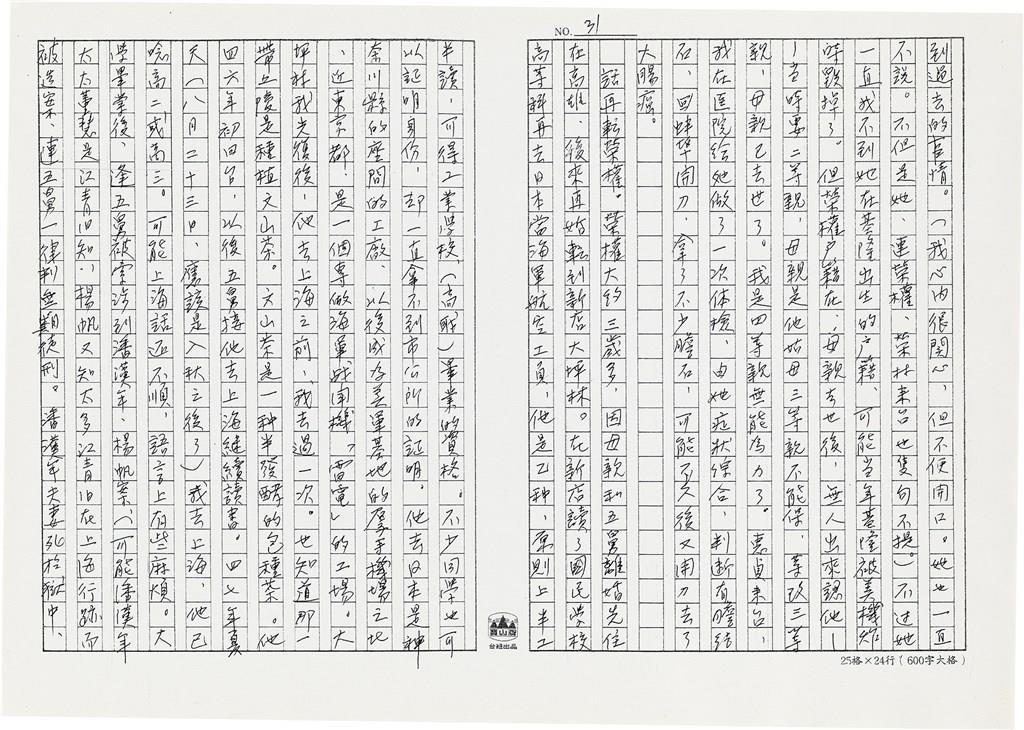 NO. 31
到過去的舊情。(我心內很關心，但不便開口。她也一直
不說。不但是她、連榮權、榮林来台也隻句不提。)不过她
一直找不到她在基隆出生的户籍、可能当年基隆被美機炸
時毀掉了。但榮權户籍在；母親去世後，無人出來認他——
！当時要二等親，母親是他姑母三等親不能保、等改三等
親，母親已去世了。我是四等親無能為力了。惠貞来台，
我在医院给她做了一次体檢、由她症狀综合、判断有膽结
石，回蚌埠開刀，拿了不少膽石，可能不久後又開刀去了
大腸癌。
話再転榮權。榮權大约三歲多，因母親和五舅離婚先住
在高雄、後來再婚転到新店大坪林。在新店讀了國民學校
高等科再去日本当海軍航空工員，他是乙种，原則上半工
半讀，可得工業學校(高職)畢業的資格。不少同學也可
以証明身份，却一直拿不到市公所的証明。他去日本是神
奈川縣的座間的工廠、以後成为美軍基地的厚木機場之北
、近東京都。是一個專做海軍战闘機「雷電」的工場。大
坪林我光復後，他去上海之前，我去過一次。也知道那一
帶丘陵是種植文山茶。文山茶是一种半發酵的包種茶。他
四六年初回台，以後五舅接他去上海継續讀書。四七年夏
天(八月二十三日，應該是入秋之後了)我去上海，他已
唸高二或高三。可能上海話还不順，語言上有些麻煩。大
學畢業後、逢五舅被牽涉到潘漢年、楊帆案、(可能潘漢年
太太董慧是江青旧知；楊帆又知太多江青旧在上海行跡而
被送案、連五舅一律判無期徒刑。潘漢年夫妻死於獄中、
寶山牌
台紙出品
25格×24行(600字大格)